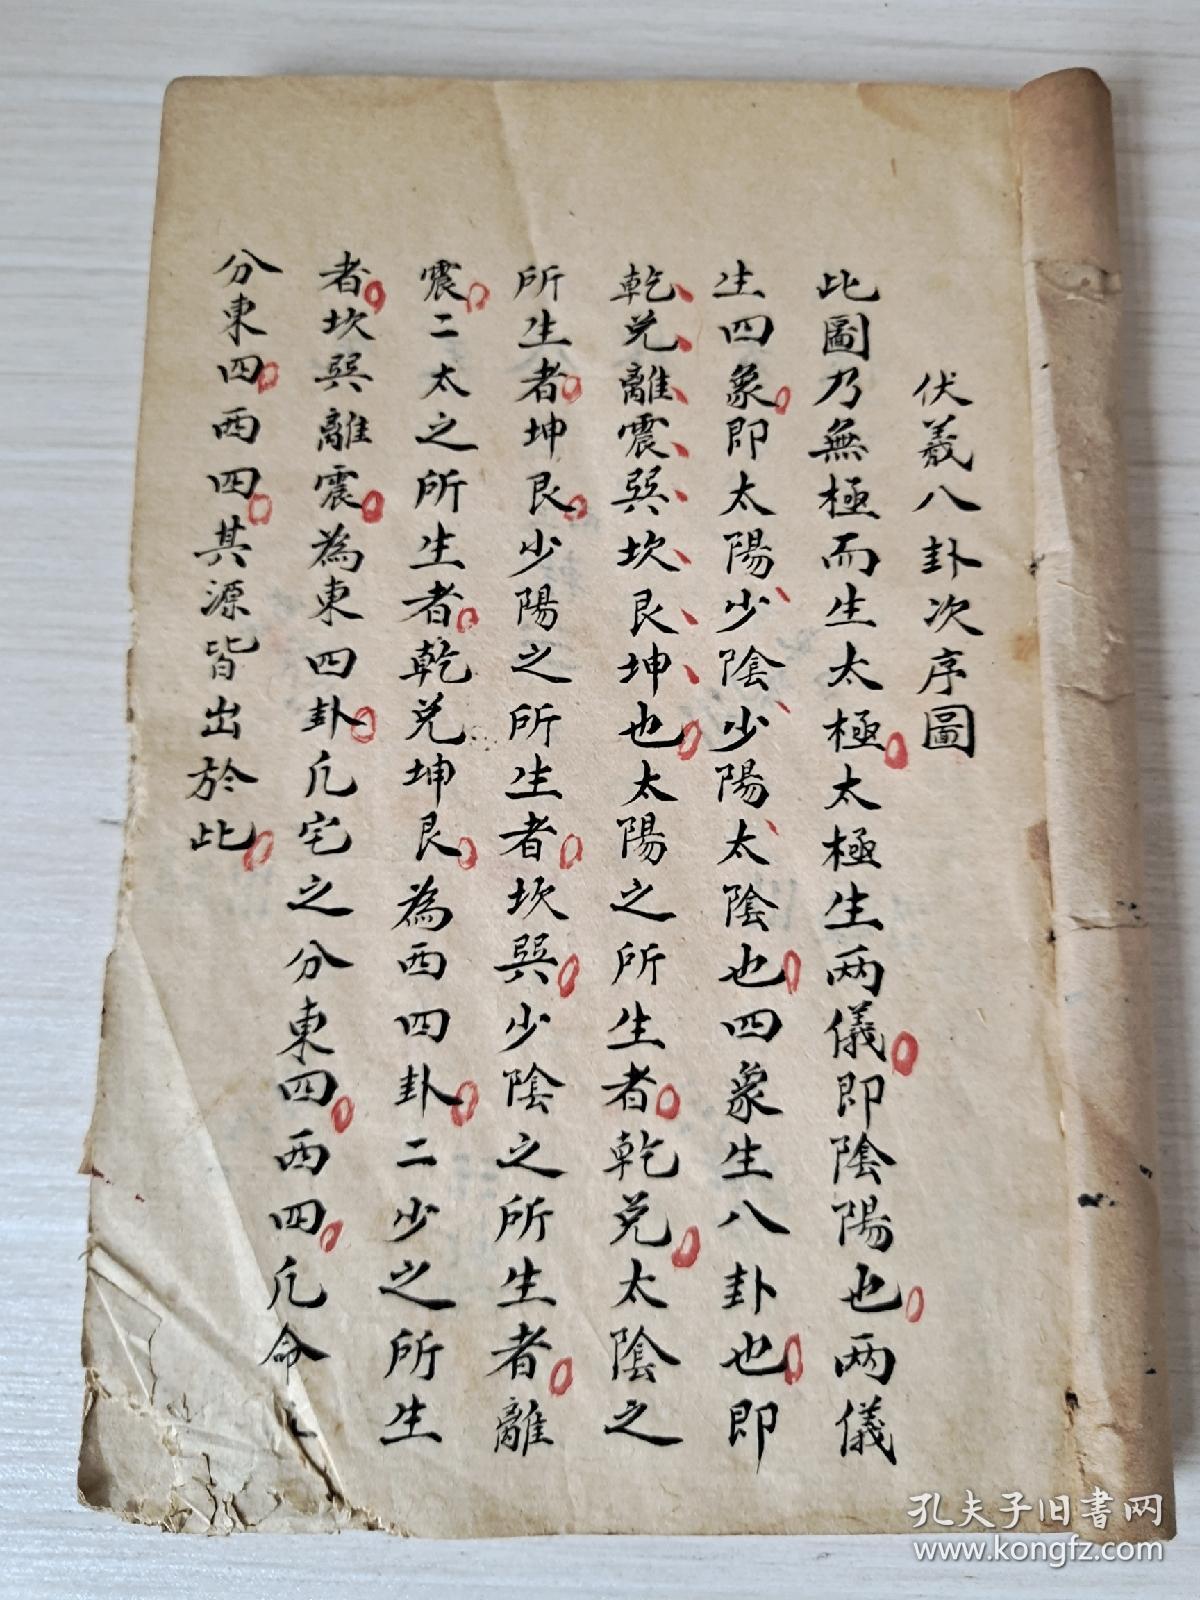 伏羲八卦次序圖
此圖乃無極而生太極太極生两儀即陰陽也两儀
生四象即太陽少陰少陽太陰也四象生八卦也即
乾兑離震巽坎艮坤也太陽之所生者乾兑太陰之
所生者坤艮少陽之所生者坎巽少陰之所生者離
震二太之所生者乾兑坤艮為西四卦二少之所生
者坎巽離震為東四卦凡宅之分東四西四凡命之
分東四西四其源皆出於此
孔夫子旧書网
www.kongfz.com